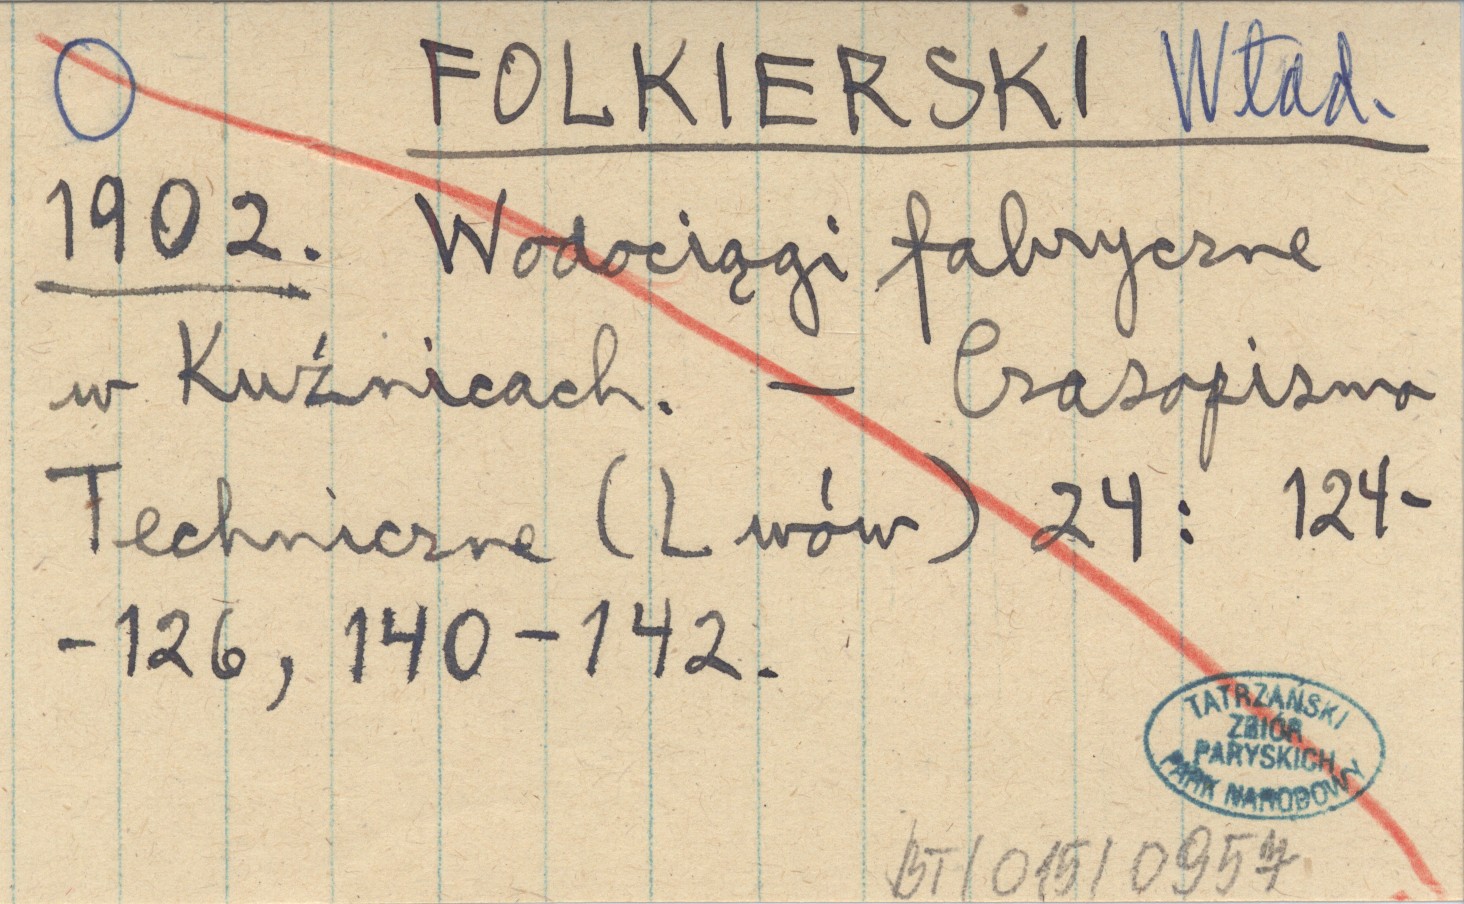 FOLKIERSKI Wład.
1902. Wodociągi fabryczne
w Kuźnicach. — Czasopismo
Techniczne (Lwów) 24: 124-
-126, 140-142.
TATRZAŃSKI
ZBIÓR
PARYSKICH
PARK NARODOWY
BT/015/0957